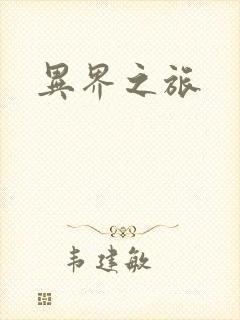 異界之旅
韦建敏